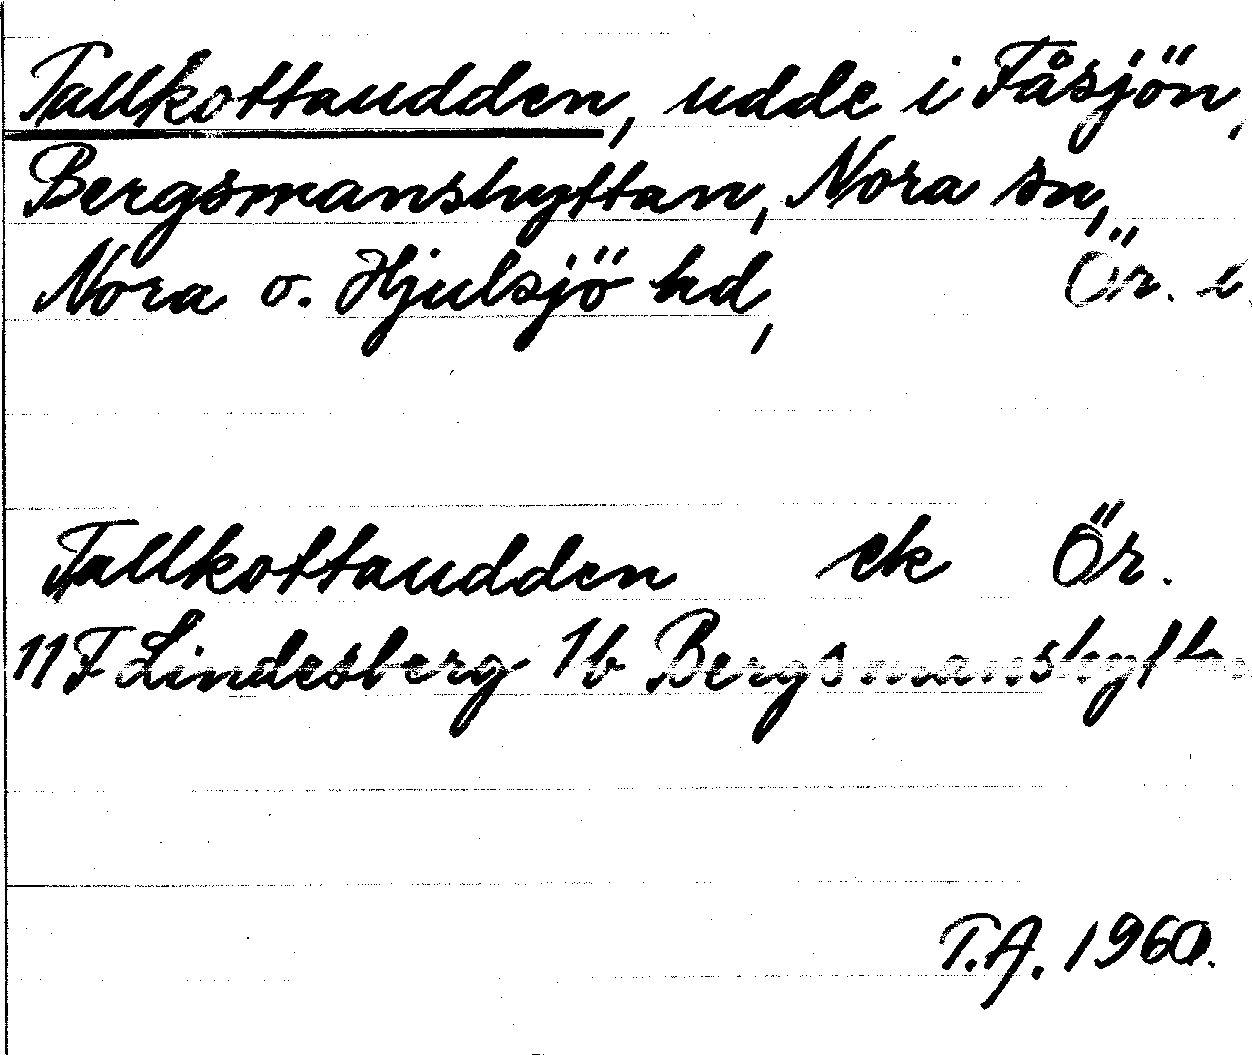 Tallkottaudden, udde i Fåsjön,
Bergsmanshyttan, Nora sn,
Nora o. Hjulsjö hd, Ör. l
Tallkottaudden ek Ör.
11F Lindesberg 1b Bergsmanshyttan
T.A. 1960.